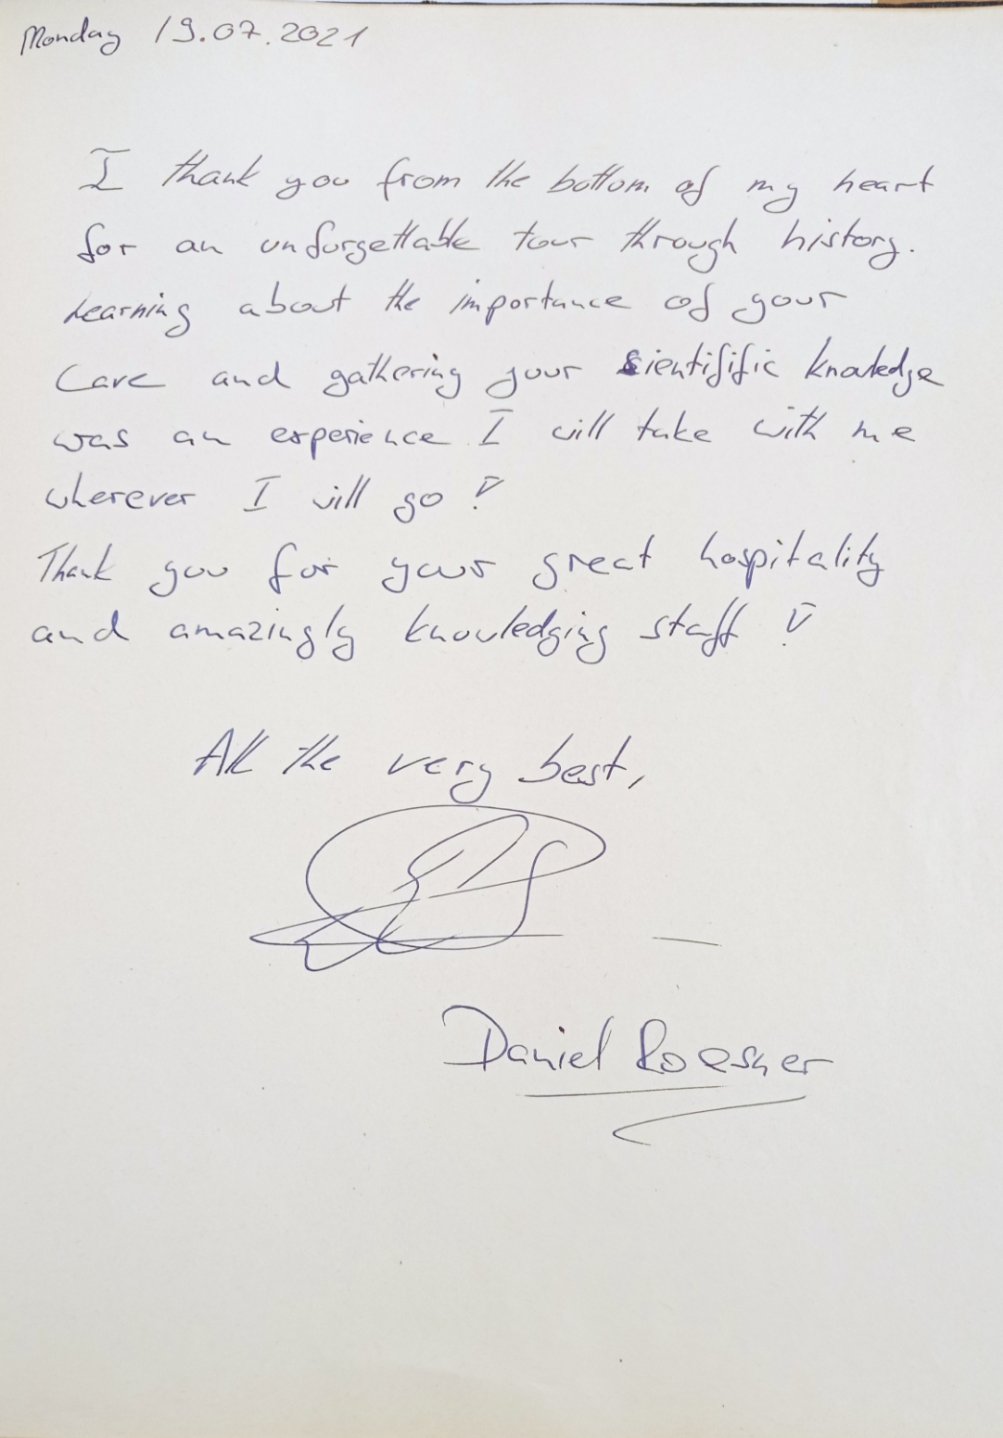 Monday 19.07.2021
I thank you from the bottom of my heart
for an unforgettable tour through history.
Learning about the importance of your
Cave and gathering your sientifific knowledge
was an experience I will take with me
wherever I will go!
Thank you for your great hospitality
and amazingly knowledging staff!
All the very best,
Daniel Roesner